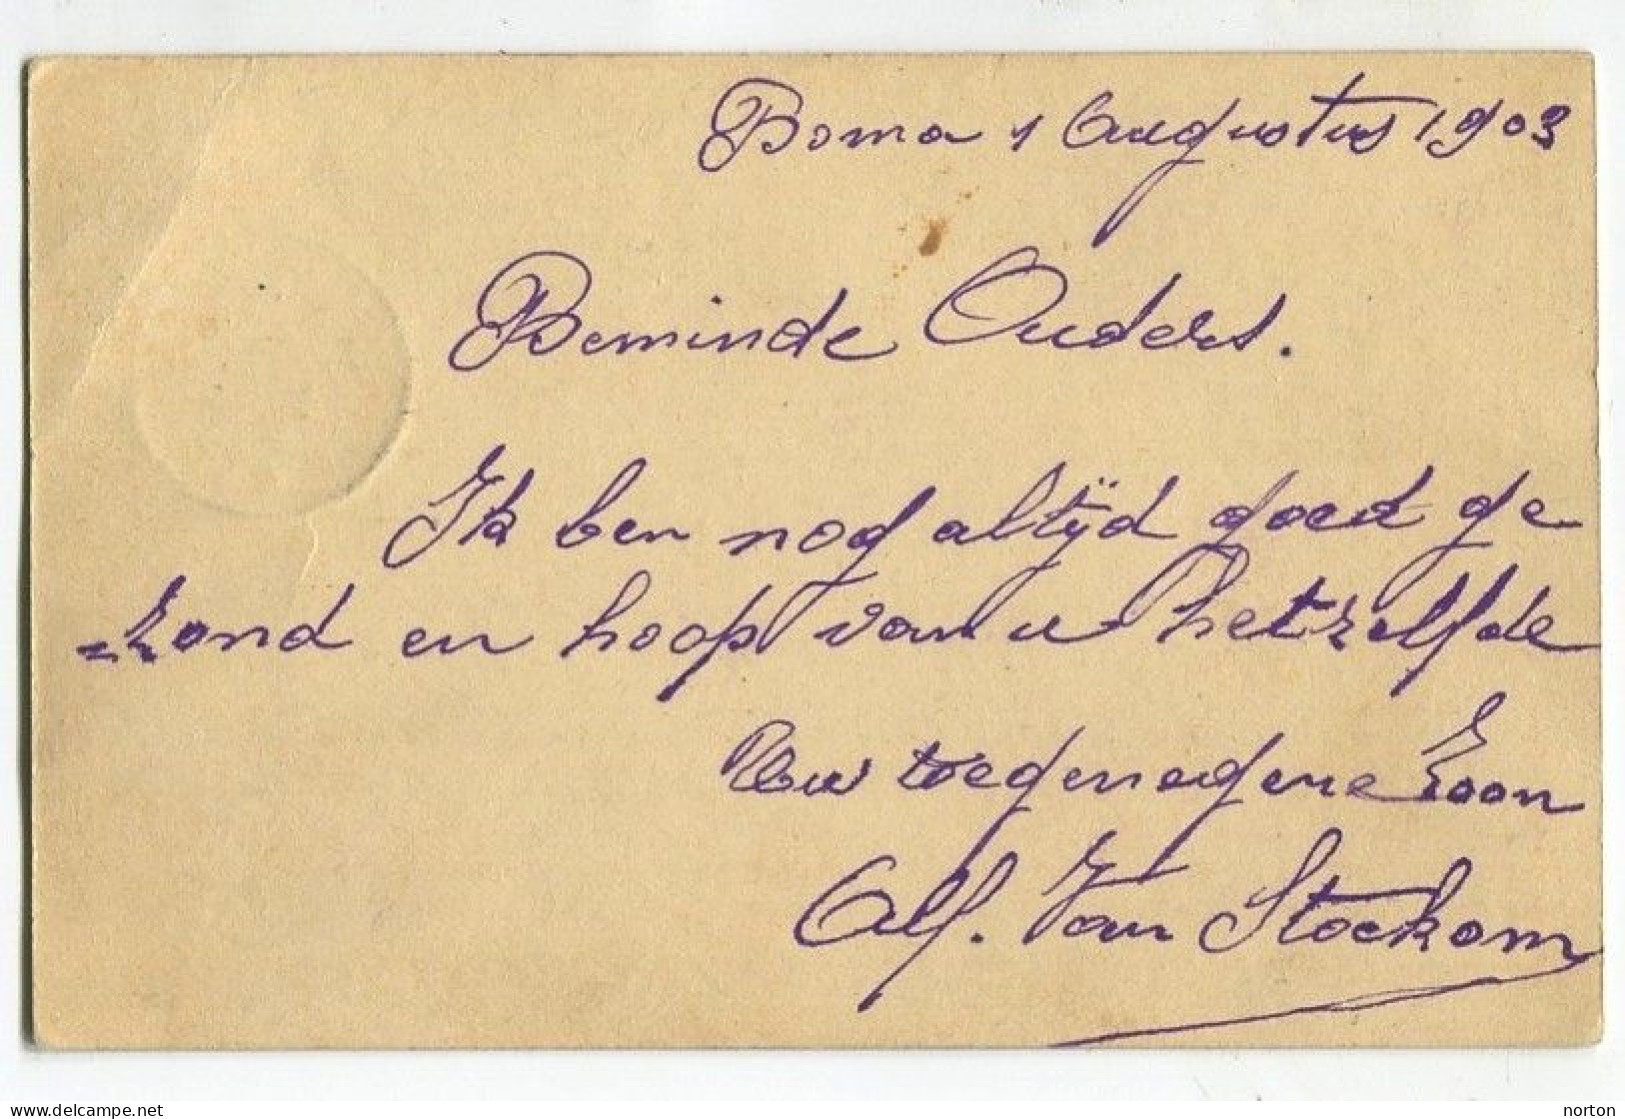 Boma 1 Augustus 1903
Beminde Ouders.
Ik ben nog altijd goed ge
=zond en hoop van u hetzelfde
Uw toegenegene Zoon
Alf. Van Stockom
www.delcampe.net
norton